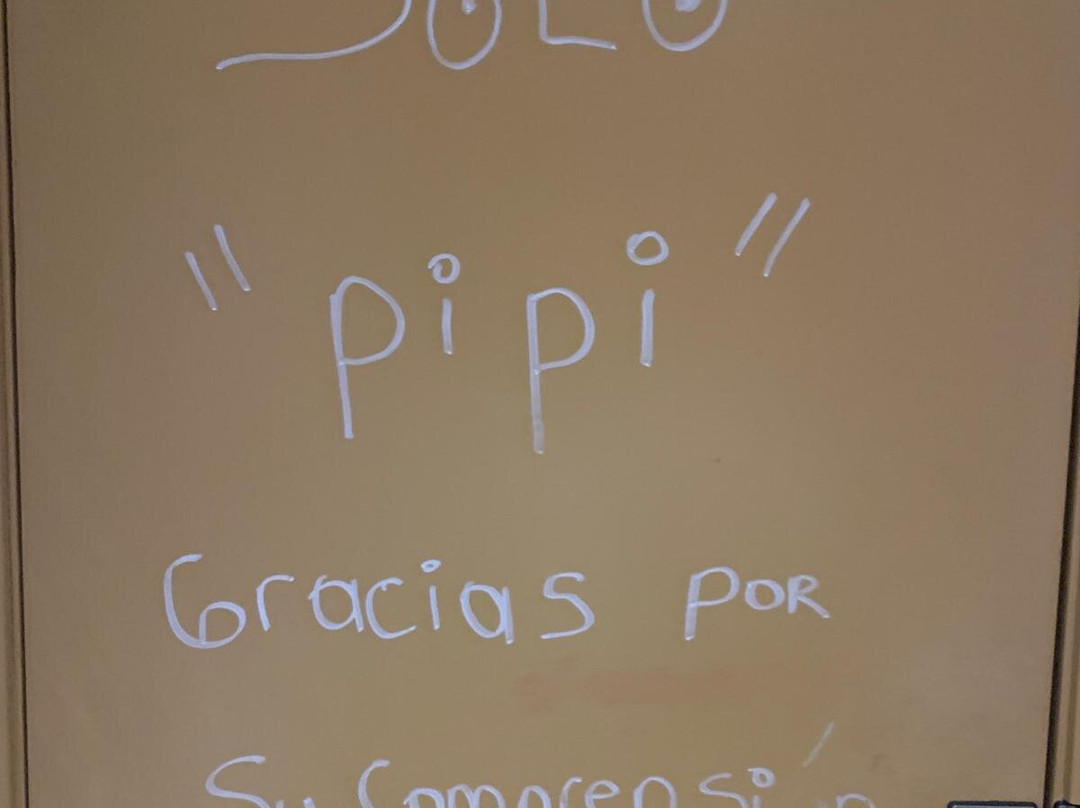 SOLO
"pipi"
Gracias POR
Su Comprensión